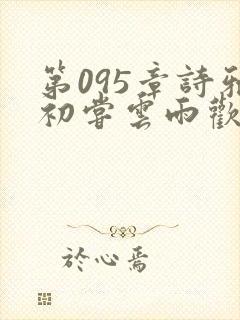 第095章詩雅
初嘗雲雨歡
於心焉